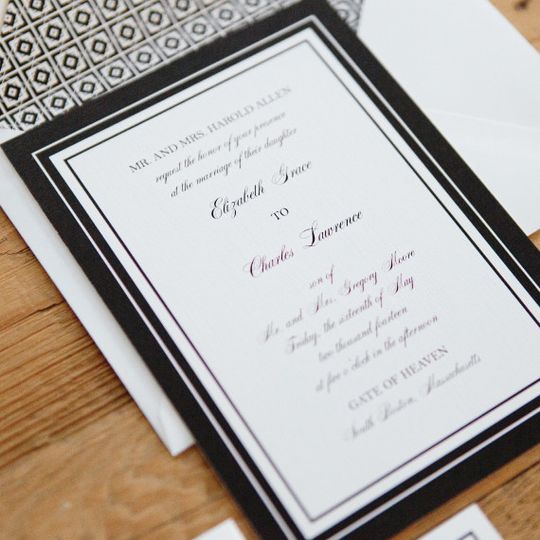 MR. AND MRS. HAROLD ALLEN
request the honor of your presence
at the marriage of their daughter
Elizabeth Grace
TO
Charles Lawrence
son of
Mr. and Mrs. Gregory Moore
Friday, the sixteenth of May
two thousand fourteen
at five o'clock in the afternoon
GATE OF HEAVEN
South Boston, Massachusetts